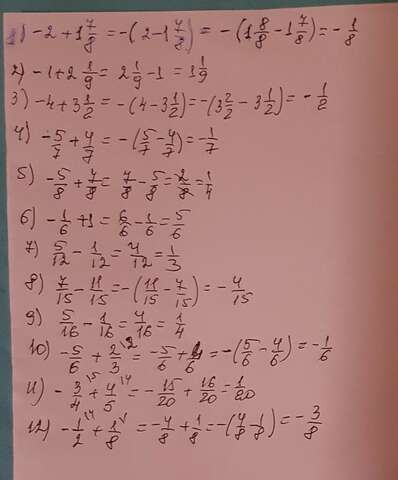 1) -2 + 1 7/8 = -(2 - 1 7/8) = -(1 8/8 - 1 7/8) = -1/8
2) -1 + 2 1/9 = 2 1/9 - 1 = 1 1/9
3) -4 + 3 1/2 = -(4 - 3 1/2) = -(3 2/2 - 3 1/2) = -1/2
4) -5/7 + 4/7 = -(5/7 - 4/7) = -1/7
5) -5/8 + 7/8 = 7/8 - 5/8 = 2/8 = 1/4
6) -1/6 + 1 = 6/6 - 1/6 = 5/6
7) 5/12 - 1/12 = 4/12 = 1/3
8) 7/15 - 11/15 = -(11/15 - 7/15) = -4/15
9) 5/16 - 1/16 = 4/16 = 1/4
10) -5/6 + 2/3 \2 = -5/6 + 4/6 = -(5/6 - 4/6) = -1/6
11) -3/4 \5 + 4/5 \4 = -15/20 + 16/20 = 1/20
12) -1/2 \4 + 1/8 \1 = -4/8 + 1/8 = -(4/8 - 1/8) = -3/8